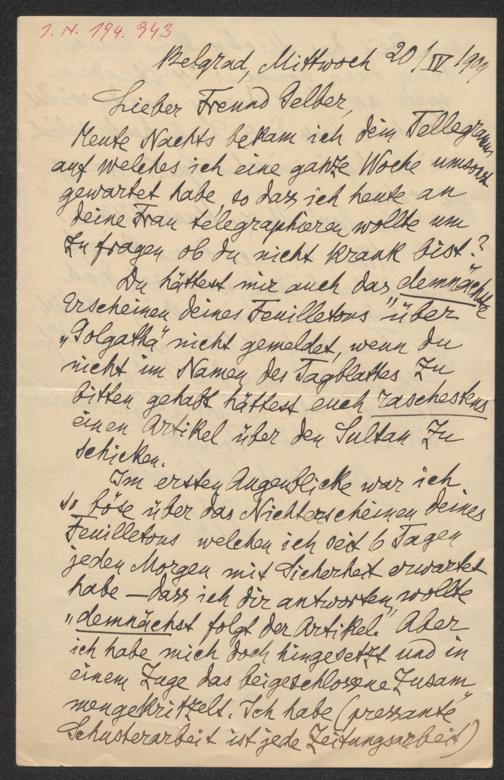 J. N. 194.943
Belgrad, Mittwoch 20/IV/19
Lieber Freund Gelber,
Heute Nachts bekam ich dein Tellegramm,
auf welches ich eine ganze Woche umsonst
gewartet habe, so dass ich heute an
deine Frau telegraphieren wollte um
zu fragen ob du nicht krank bist?
Du hättest mir auch das demnächste
Erscheinen deines Feuilletons über
„Golgatha" nicht gemeldet, wenn du
nicht im Namen des Tagblattes zu
bitten gehabt hättest euch raschestens
einen Artikel über den Sultan zu
schicken.
Im ersten Augenblicke war ich
so böse über das Nichterscheinen deines
Feuilletons welchen ich seit 6 Tagen
jeden Morgen mit Sicherheit erwartet
habe – dass ich dir antworten wollte
„demnächst folgt der Artikel." Aber
ich habe mich doch hingesetzt und in
einem Zuge das beigeschlossene Zusam
mengekritzelt. Ich habe (pressante
Schusterarbeit ist jede Zeitungsarbeit)